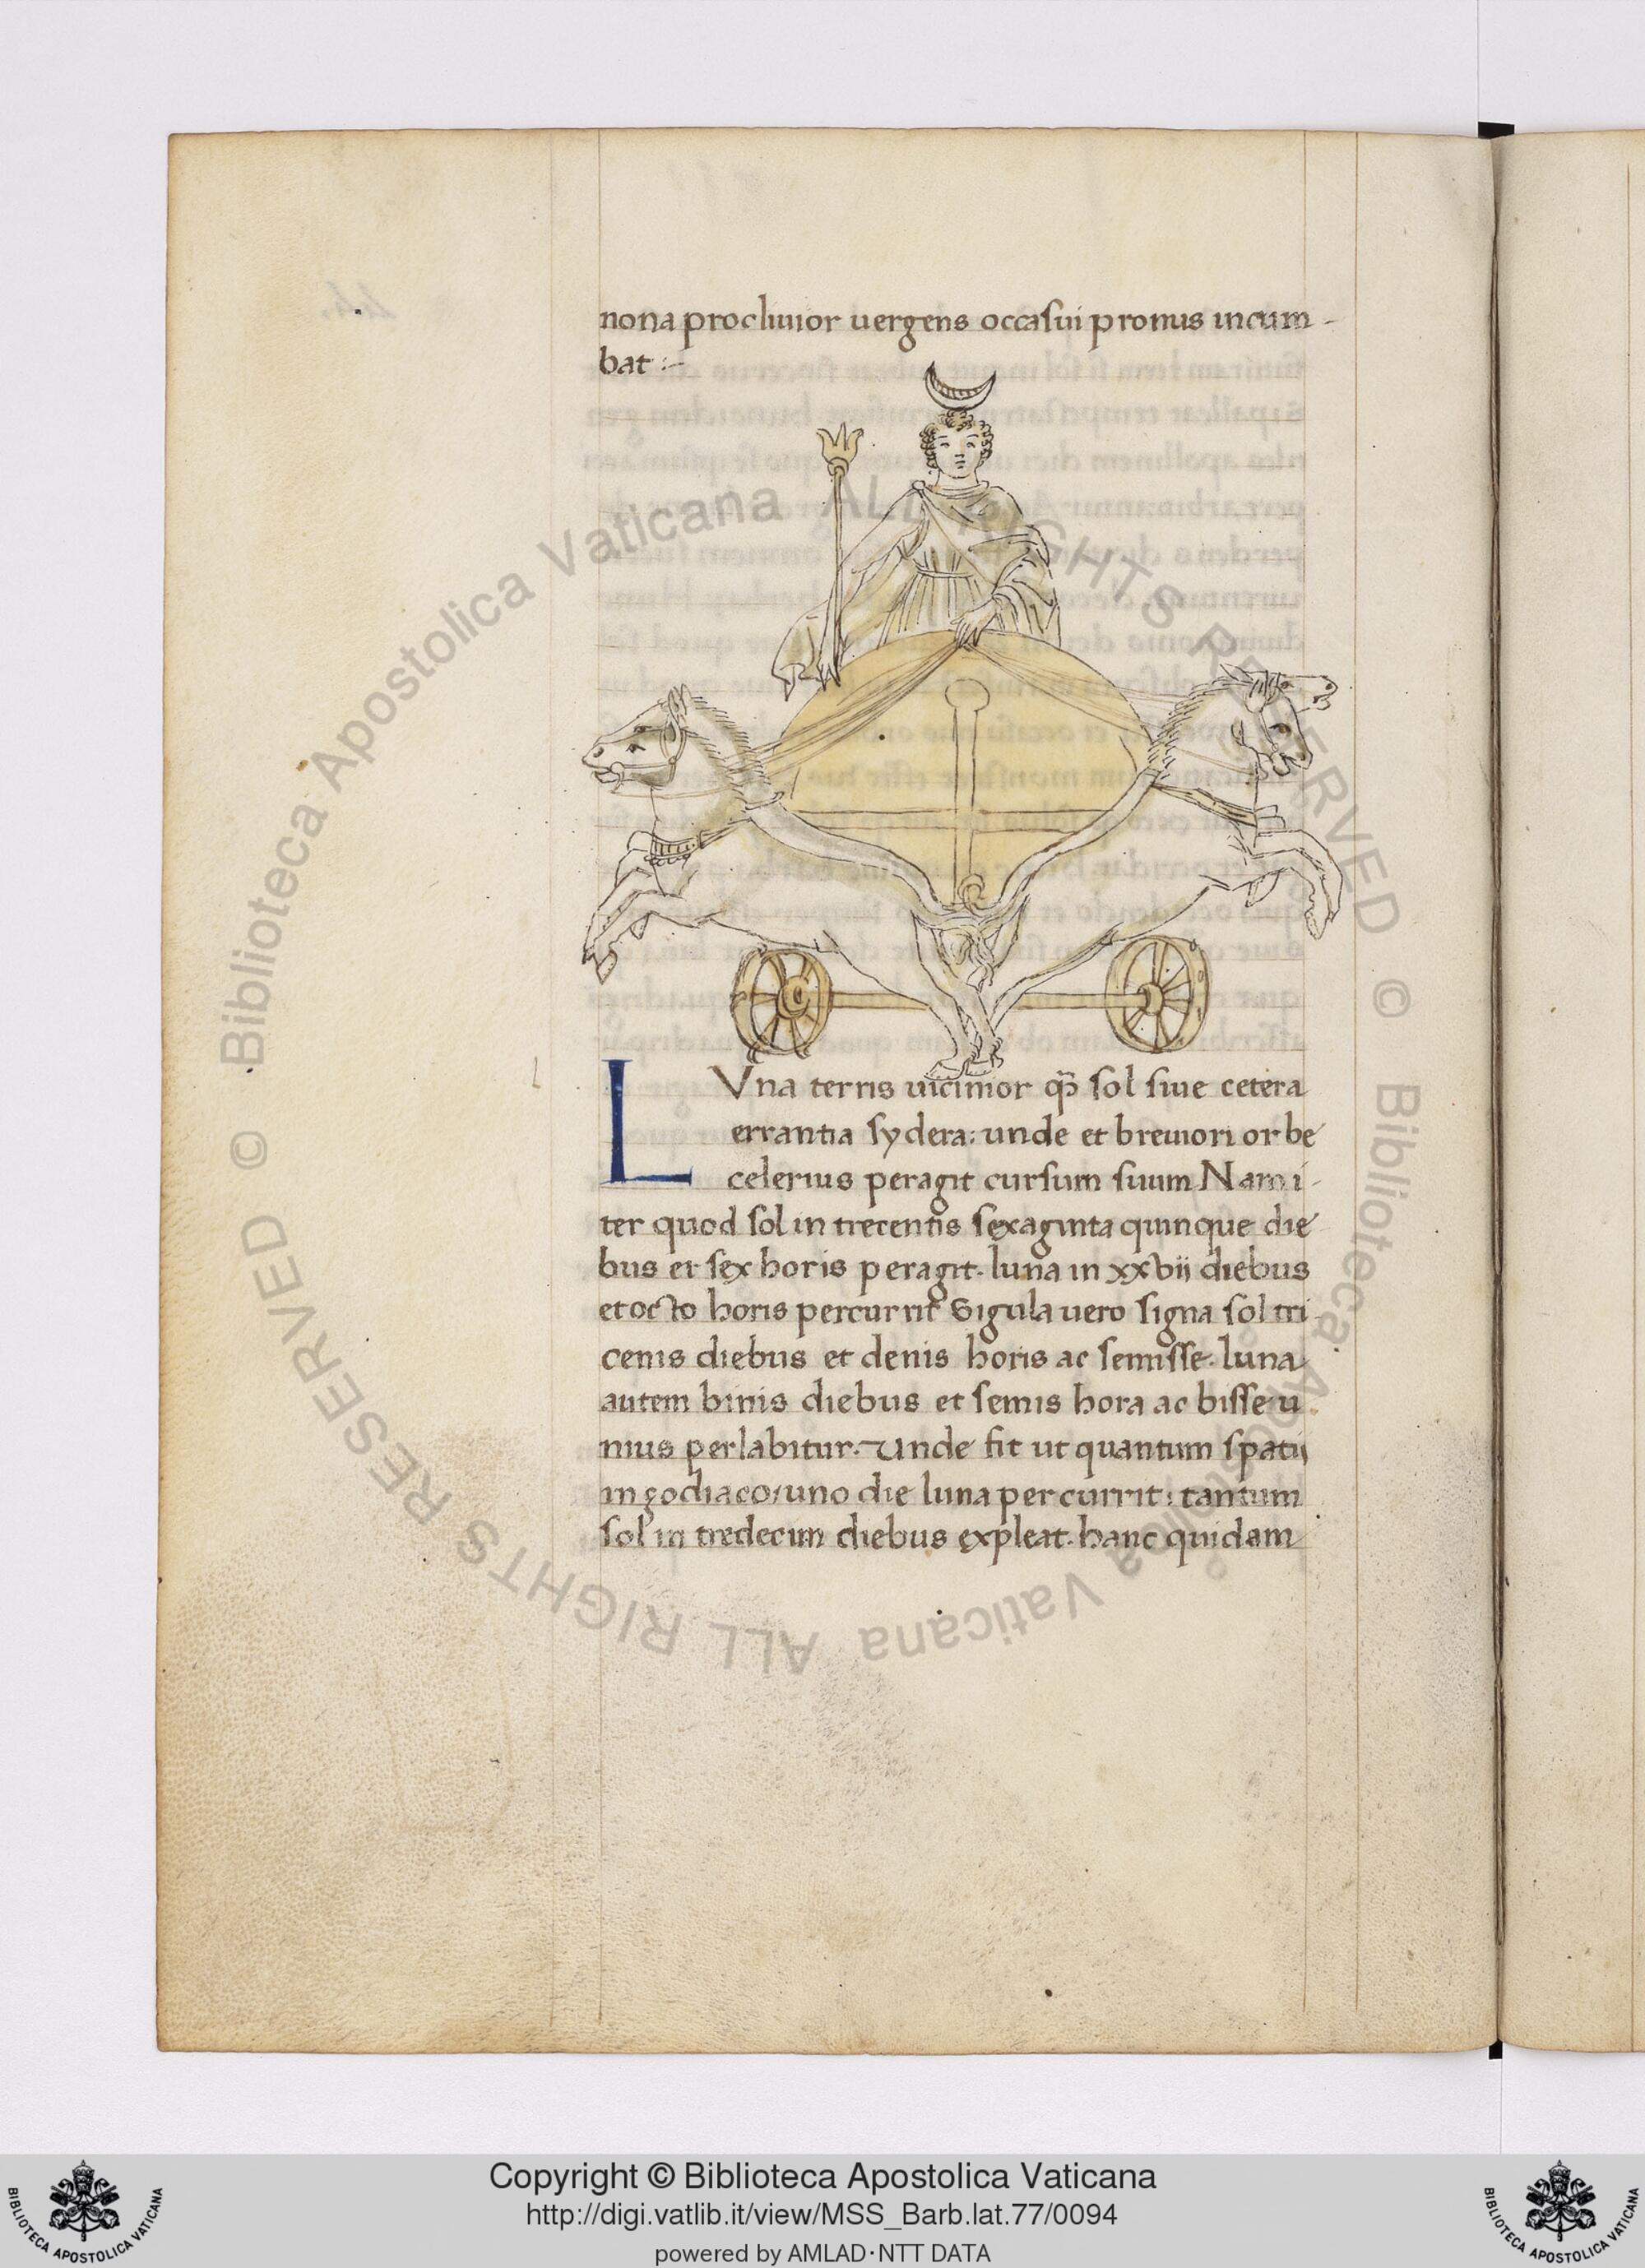 nona procliuior uergens occasui pronus incum-
bat :-
LVna terris uicinior qȝ̃ sol siue cetera
errantia sydera: unde et breuiori orbe
celerius peragit cursum suum Nam i-
ter quod sol in trecentis sexaginta quinque die
bus et sex horis peragit. luna in xxvij diebus
et octo horis percurrit Sigula uero signa sol tri
cenis diebus et denis horis ac semisse. luna
autem binis diebus et semis hora ac bisse u
nius perlabitur. Unde fit ut quantum spatij
in zodiaco: uno die luna percurrit: tantum
sol in tredecim diebus expleat. hanc quidam
© Biblioteca Apostolica Vaticana ALL RIGHTS RESERVED © Biblioteca Apostolica Vaticana ALL RIGHTS RESERVED
Copyright © Biblioteca Apostolica Vaticana
http://digi.vatlib.it/view/MSS_Barb.lat.77/0094
powered by AMLAD·NTT DATA
BIBLIOTECA APOSTOLICA VATICANA
BIBLIOTECA APOSTOLICA VATICANA